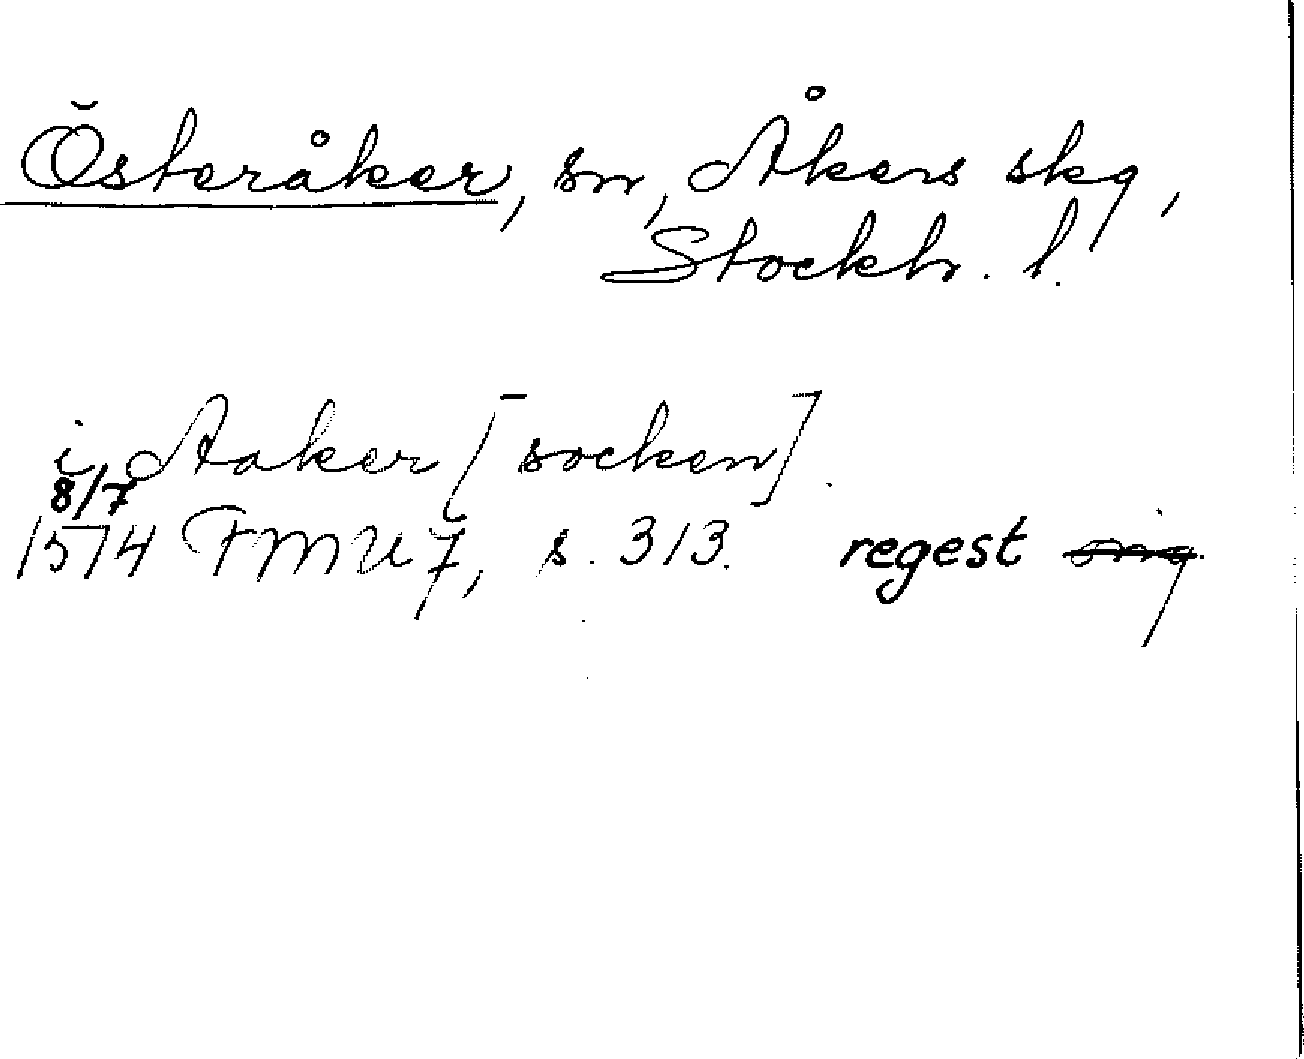 Österåker, sn, Åkers skg,
Stockh. l.
i Aaker [socken].
8/7
1514 FMU 7, s. 313. regest orig.